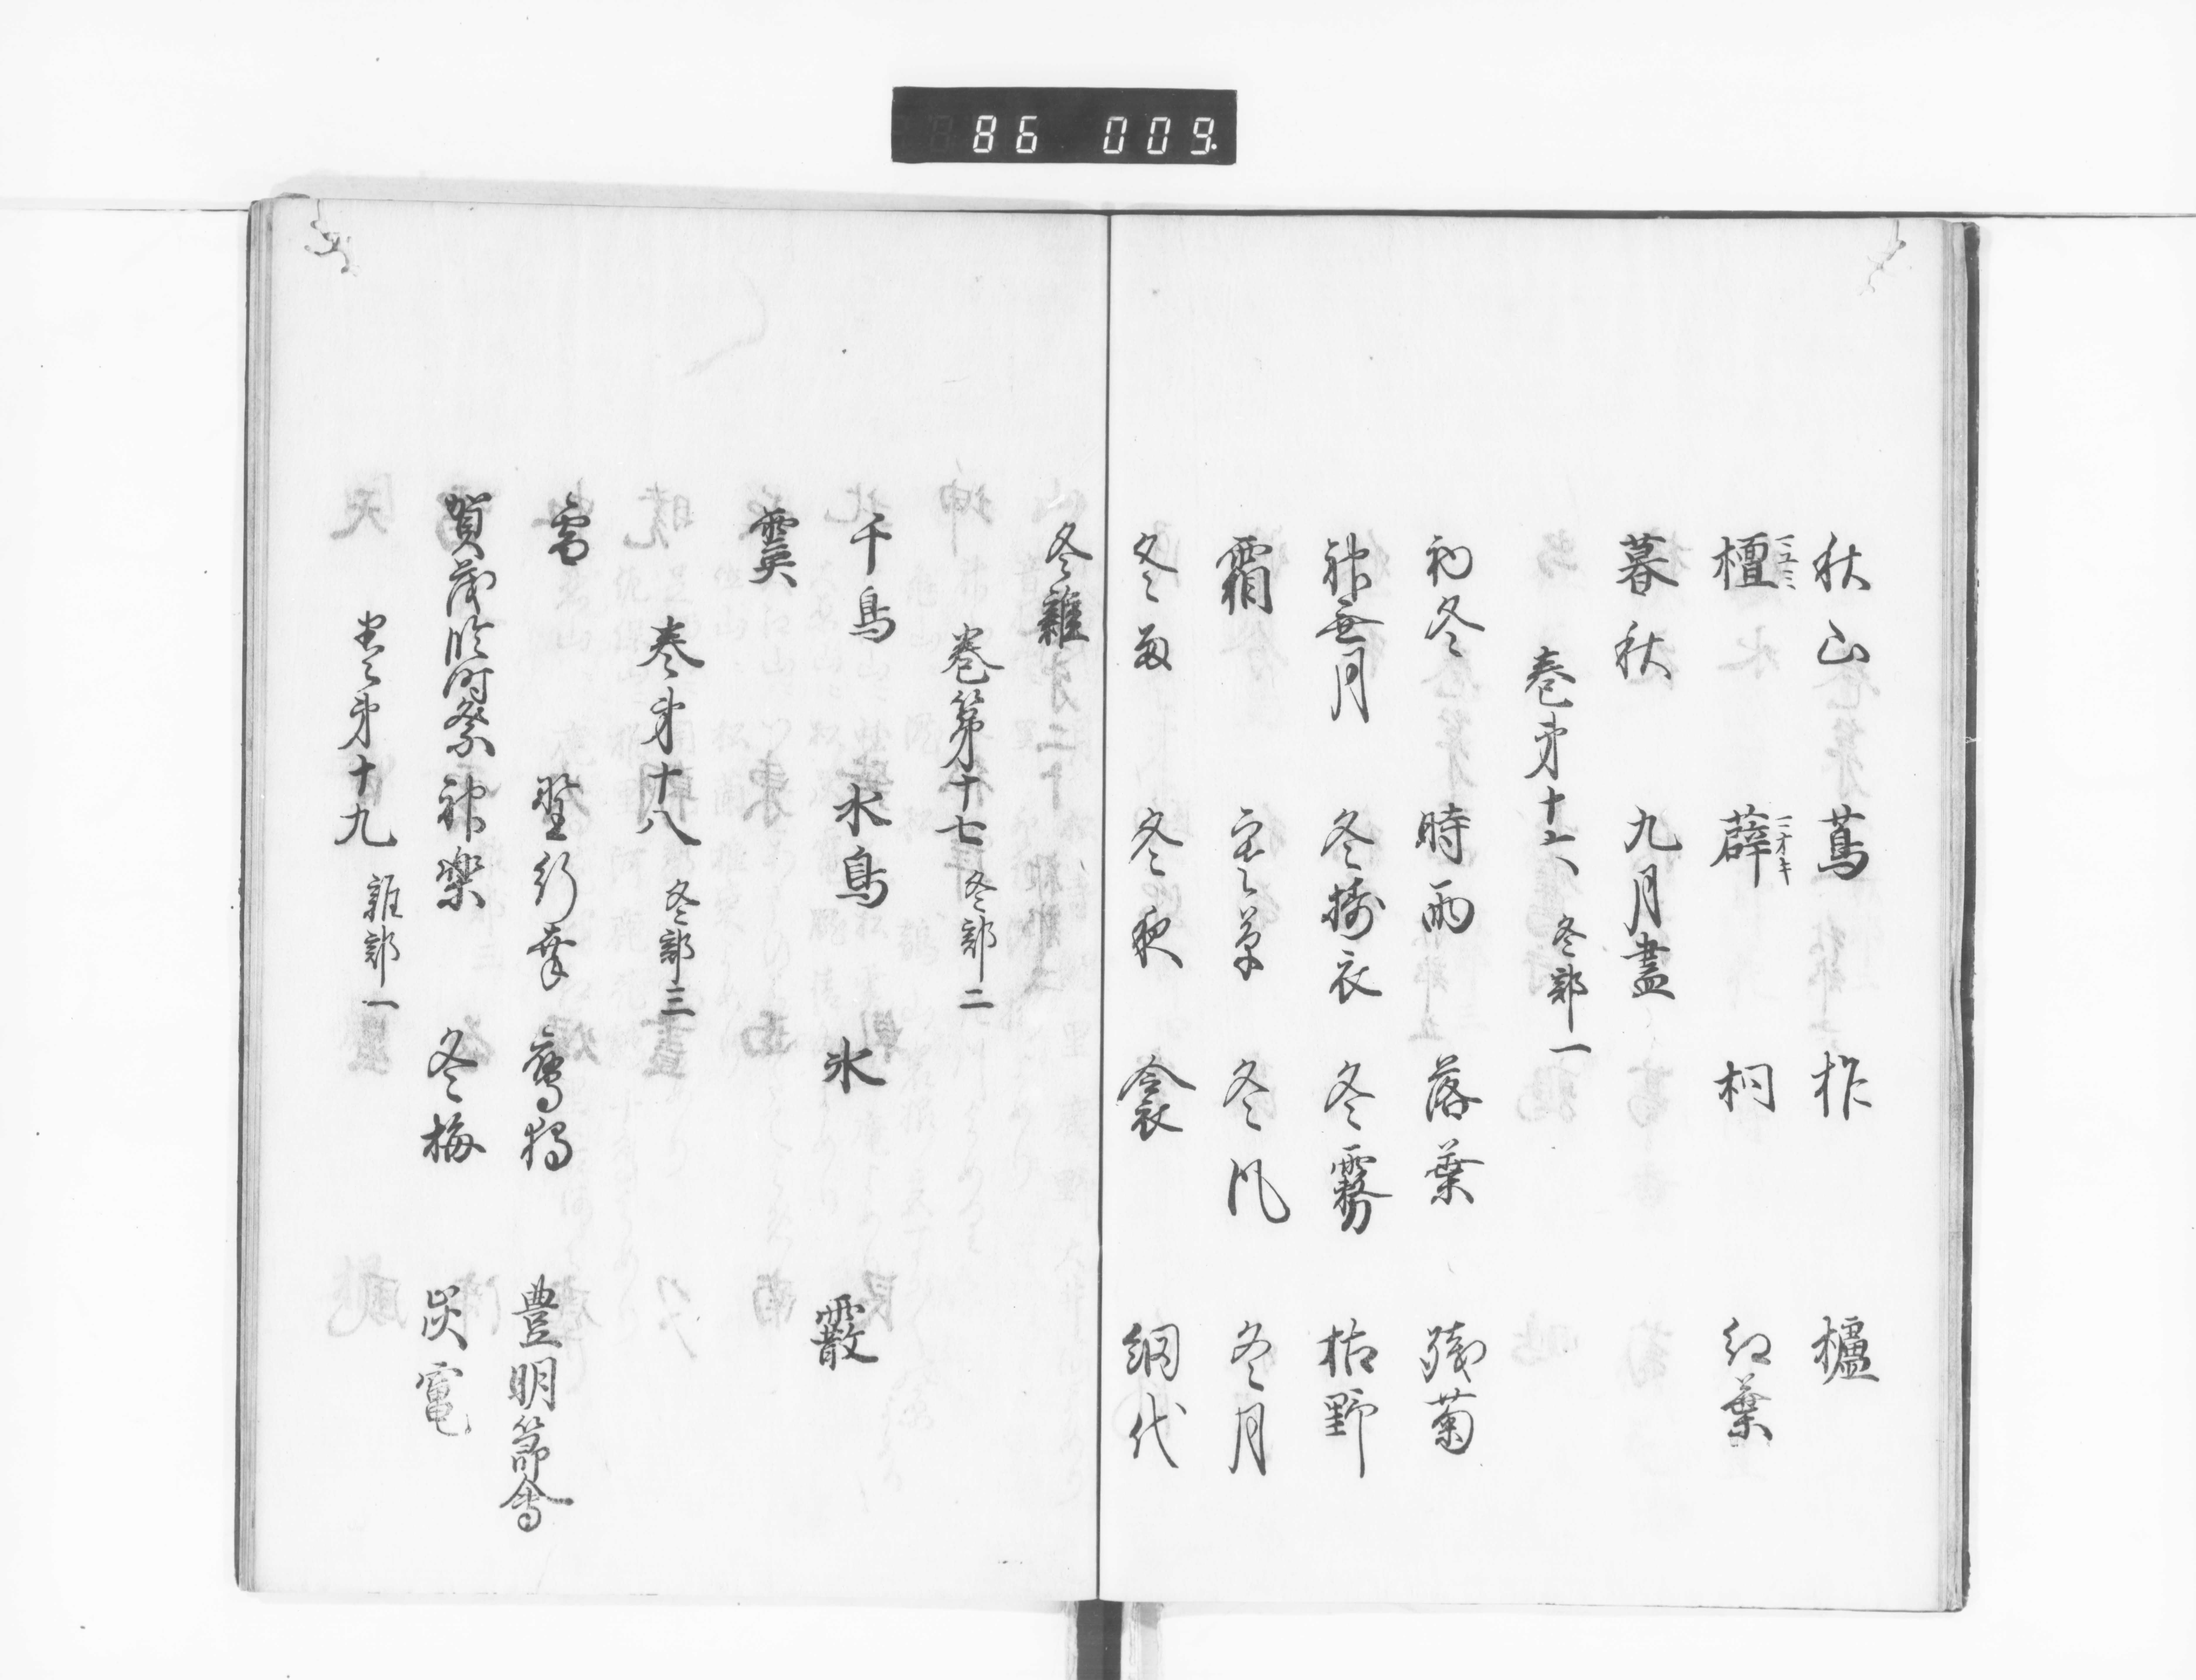 86 009
秋山 蔦 柞 櫨
檀 マユミ 薜 マオキ 桐 紅葉
暮秋 九月盡
巻第十六 冬部一
初冬 時雨 落葉 残菊
神無月 冬擣衣 冬霧 枯野
霜 寒草 冬風 冬月
冬菊 冬夜 衾 網代
冬雜
巻第十七 冬部二
千鳥 水鳥 氷 霰
霙
巻第十八 冬部三
雪 野行幸 鷹狩 豊明節會
賀茂臨時祭 神楽 冬梅 炭竃
巻第十九 雜部一